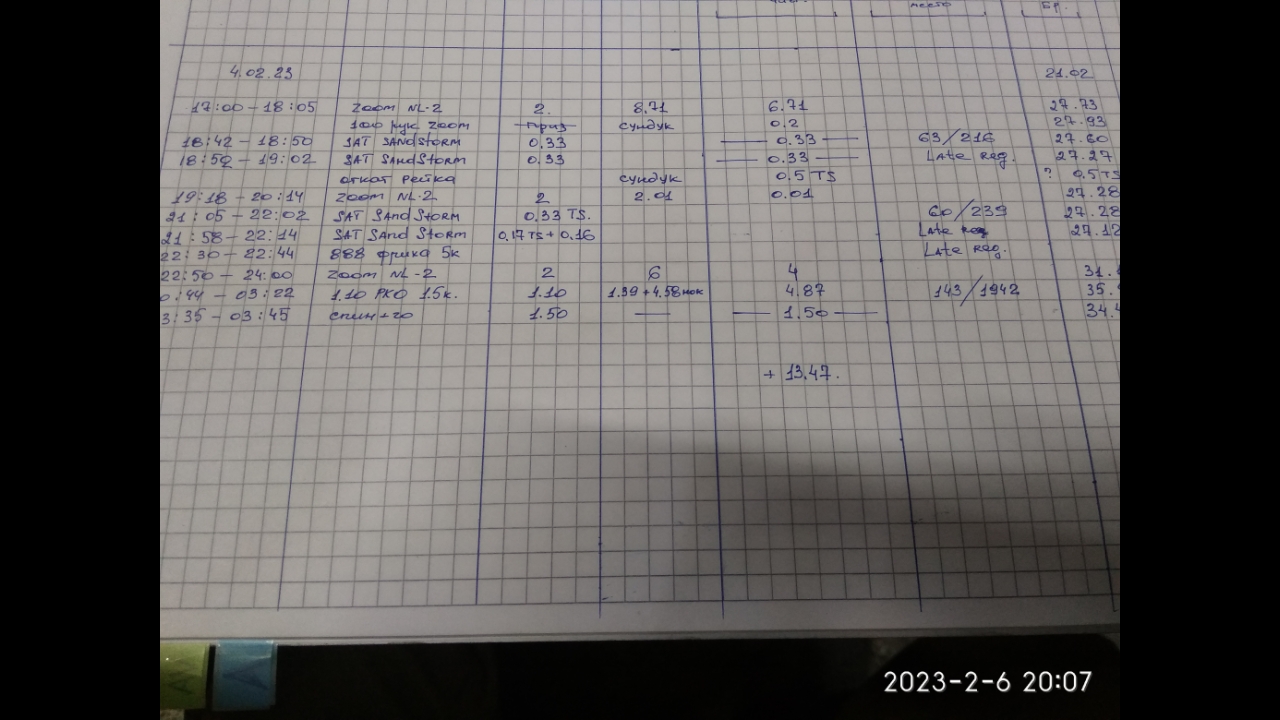 место
4.02.23 21.02
17:00 – 18:05 ZOOM NL-2 2. 8.71 6.71 27.73
100 рук ZOOM приз сундук 0.2 27.93
18:42 – 18:50 SAT SANdStORM 0.33 — 0.33 — 63/216 27.60
18:52 – 19:02 SAT SANdStORM 0.33 — 0.33 — LAte reg. 27.27
откат рейка сундук 0.5 TS ? 0.5 TS
19:18 – 20:14 ZOOM NL-2 2 2.01 0.01 27.28
21:05 – 22:02 SAT SAnd StORM 0.33 TS. 60/239 27.28
21:58 – 22:14 SAT SAnd StORM 0.17 TS + 0.16 LAte reg 27.12
22:30 – 22:44 888 фриха 5к LAte reg.
22:50 – 24:00 ZOOM NL-2 2 6 4 31.
0:44 – 03:22 1.10 PKO 1.5к. 1.10 1.39 + 4.58 нок 4.87 143/1942 35.
3:35 – 03:45 спин+го 1.50 — — 1.50 — 34.4
+ 13.47.
2023-2-6 20:07